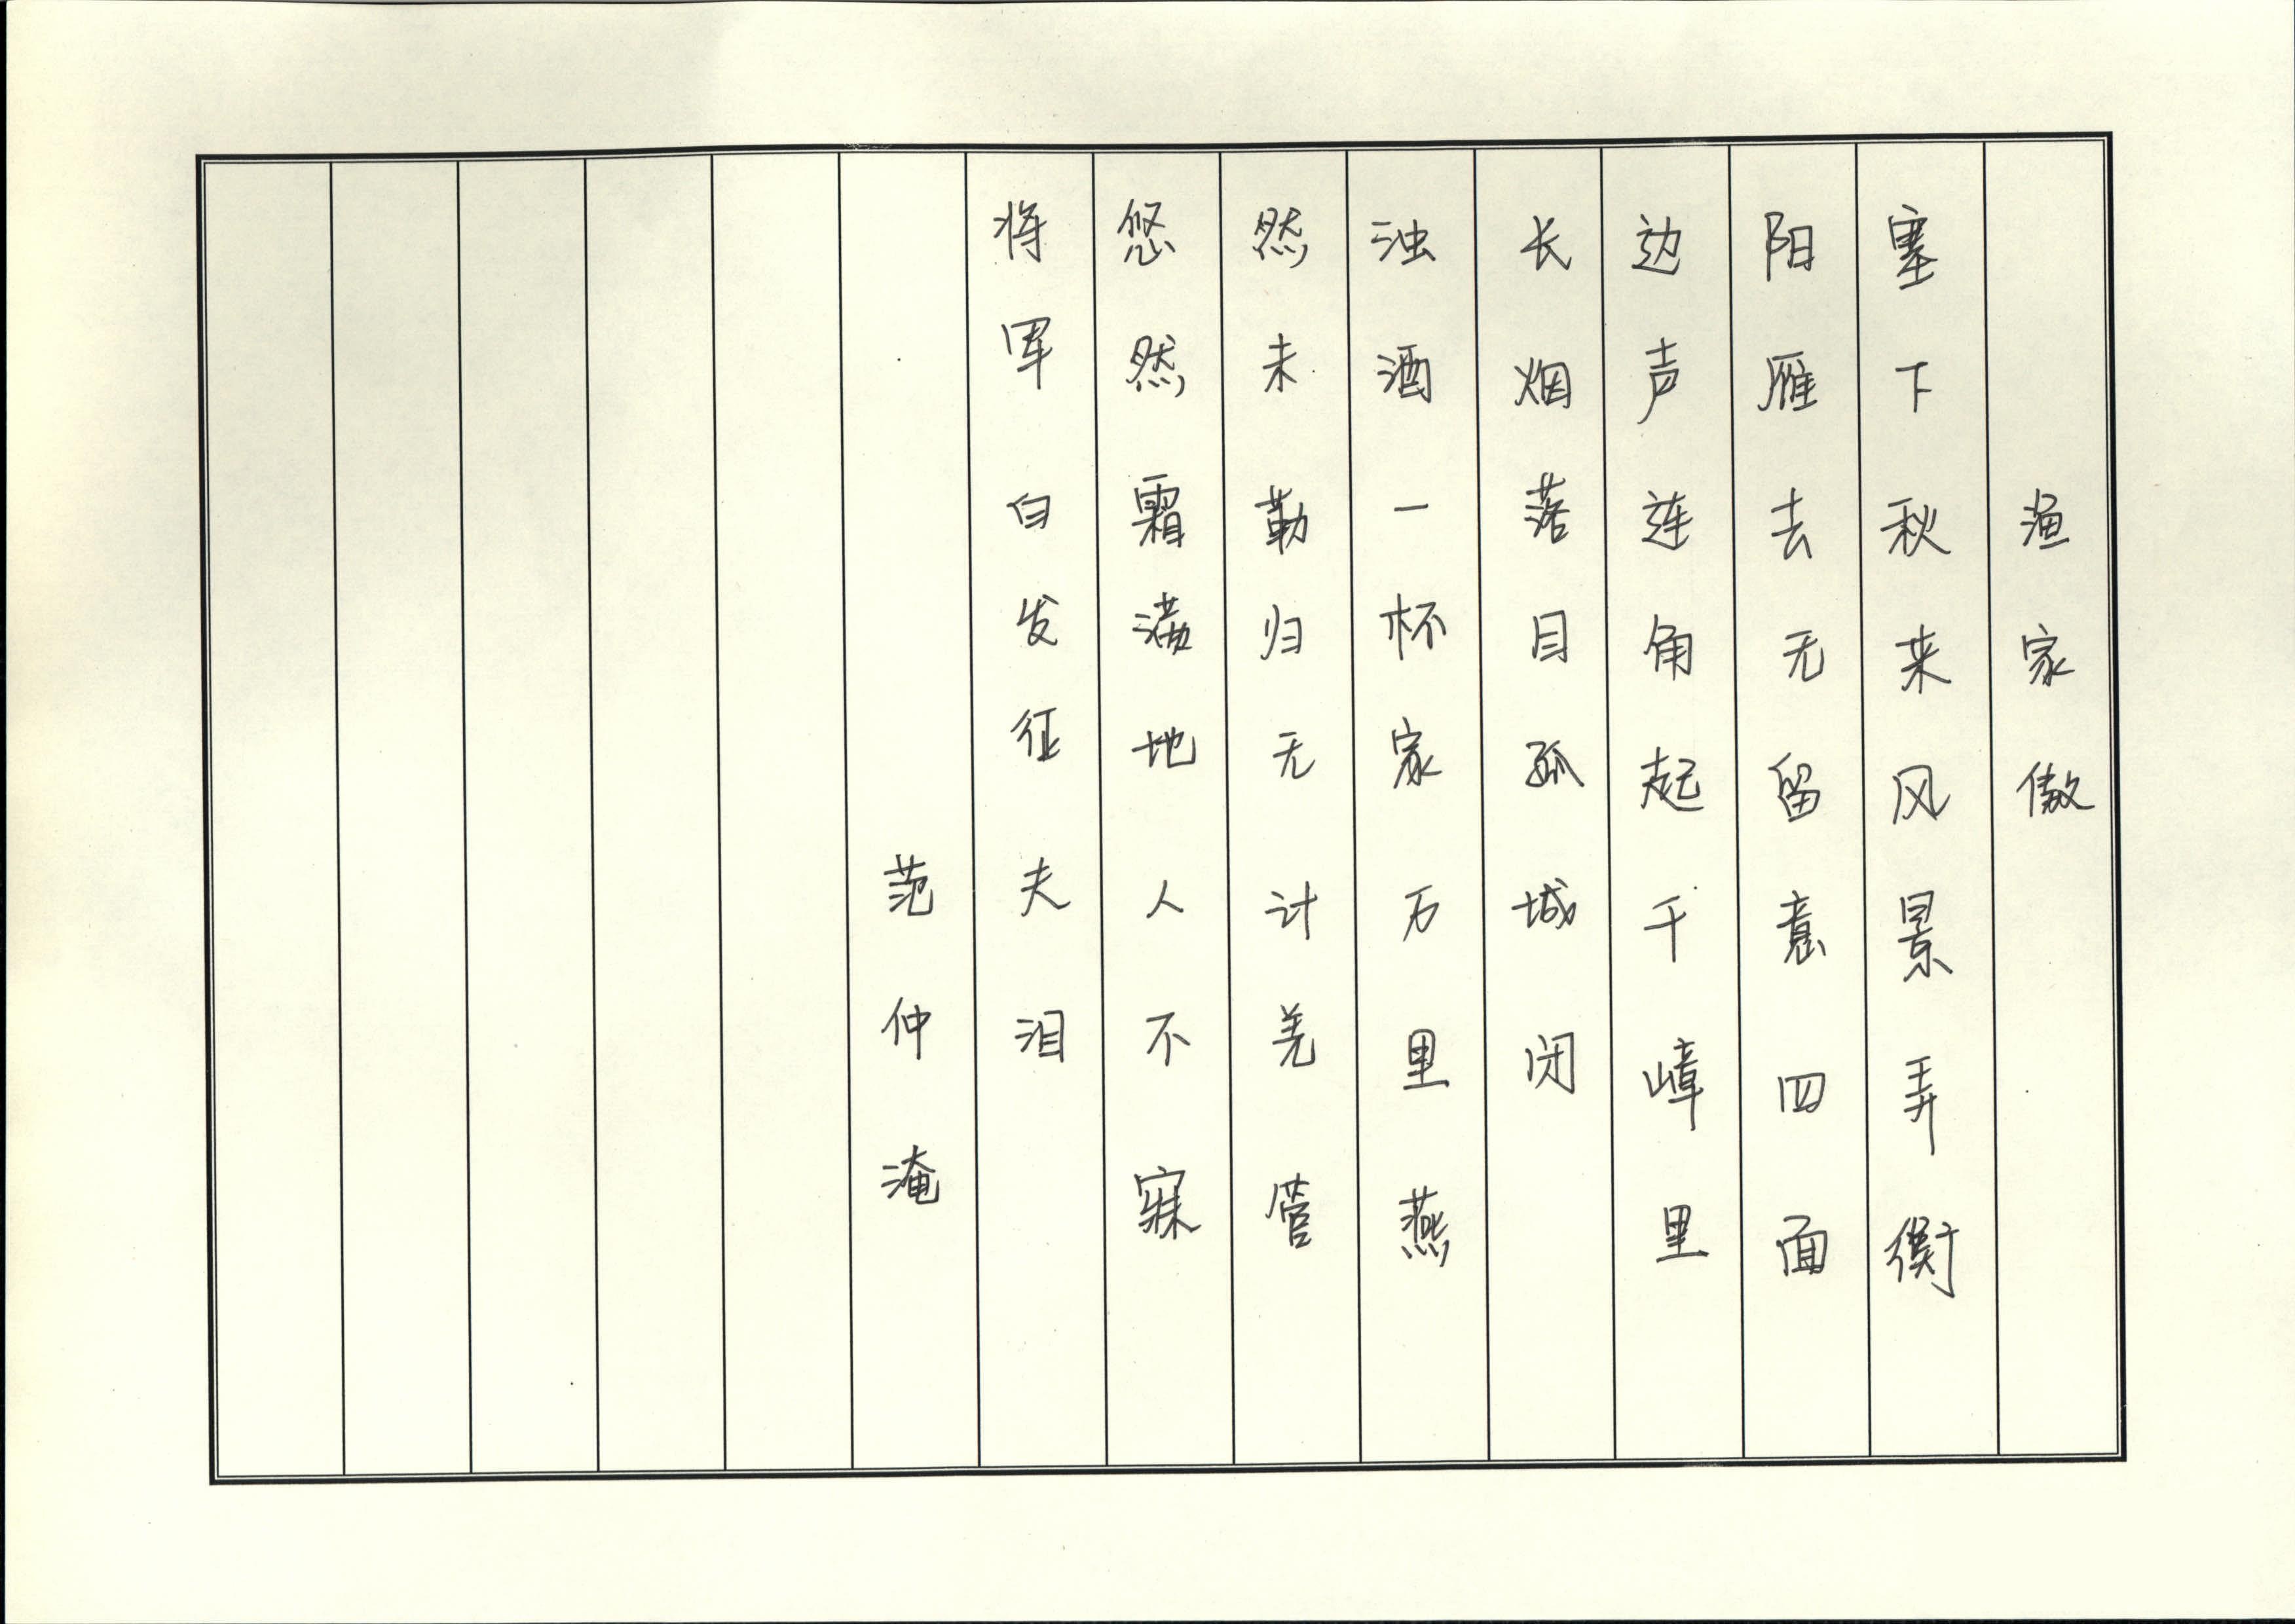 渔家傲
塞下秋来风景弄衡
阳雁去无留意四面
边声连角起千嶂里
长烟落目孤城闭
浊酒一杯家万里燕
然未勒归无计羌管
悠然霜满地人不寐
将军白发征夫泪
范仲淹